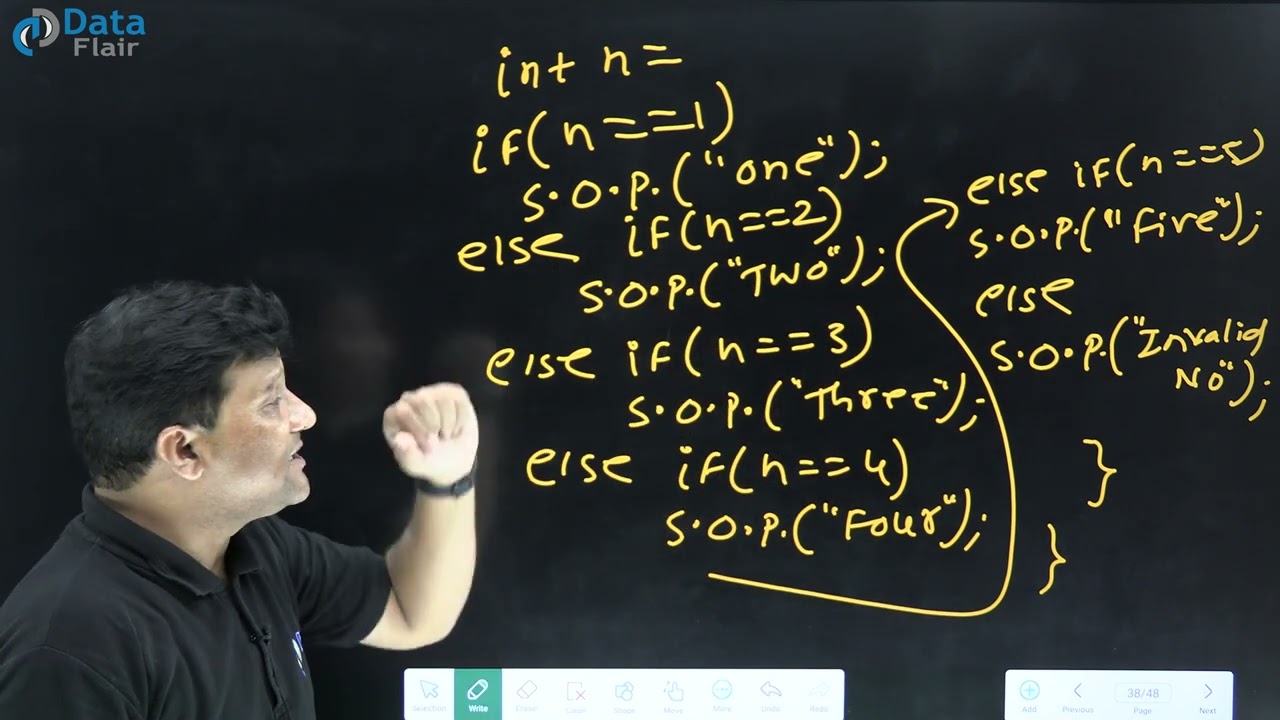 Data
Flair
int n =
if(n==1)
S.O.P.("one");
else if(n==2)
S.O.P.("TWO");
else if(n==3)
S.O.P.("Three");
else if(n==4)
S.O.P.("Four");
else if(n==5)
S.O.P.("Five");
else
S.O.P.("Invalid
NO");
}
}
Selection
Write
Eraser
Clean
Shape
Move
More
Undo
Redo
Add
Previous
38/48
Page
Next